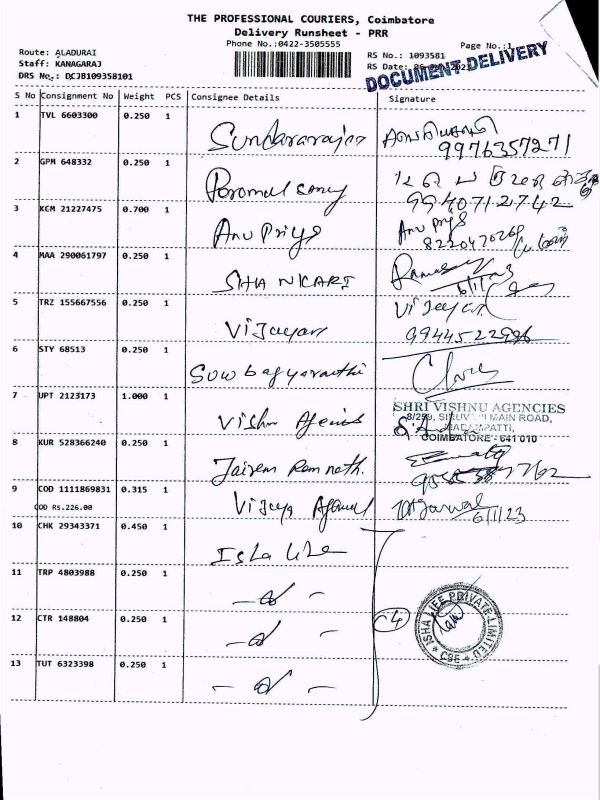 THE PROFESSIONAL COURIERS, Coimbatore
Delivery Runsheet - PRR
Phone No.:0422-3505555
Page No.:1
Route: ALADURAI
RS No.: 1093581
Staff: KANAGARAJ
RS Date:
DRS No.: DCJB109358101
DOCUMENT DELIVERY
S No Consignment No Weight PCS Consignee Details Signature
1 TVL 6603300 0.250 1 Sundararajan
9976357271
2 GPM 648332 0.250 1
9940712742
3 KCM 21227475 0.700 1 Anu Priya Anu Priya
4 MAA 290061797 0.250 1 SHANKARI
5 TRZ 155667556 0.250 1 Vijayan Vijayan
9944522996
6 STY 68513 0.250 1
7 UPT 2123173 1.000 1 Vishnu
SHRI VISHNU AGENCIES
MAIN ROAD,
COIMBATORE - 641 010
8 KUR 528366240 0.250 1 Jairam Ram nath.
9 COD 1111869831 0.315 1 Vijaya Agarwal Agarwal
COD RS.226.00 6/1/23
10 CHK 29343371 0.450 1 Isha Life
11 TRP 4803988 0.250 1
12 CTR 148804 0.250 1
4
ISHA LIFE PRIVATE LIMITED
* CBE *
13 TUT 6323398 0.250 1